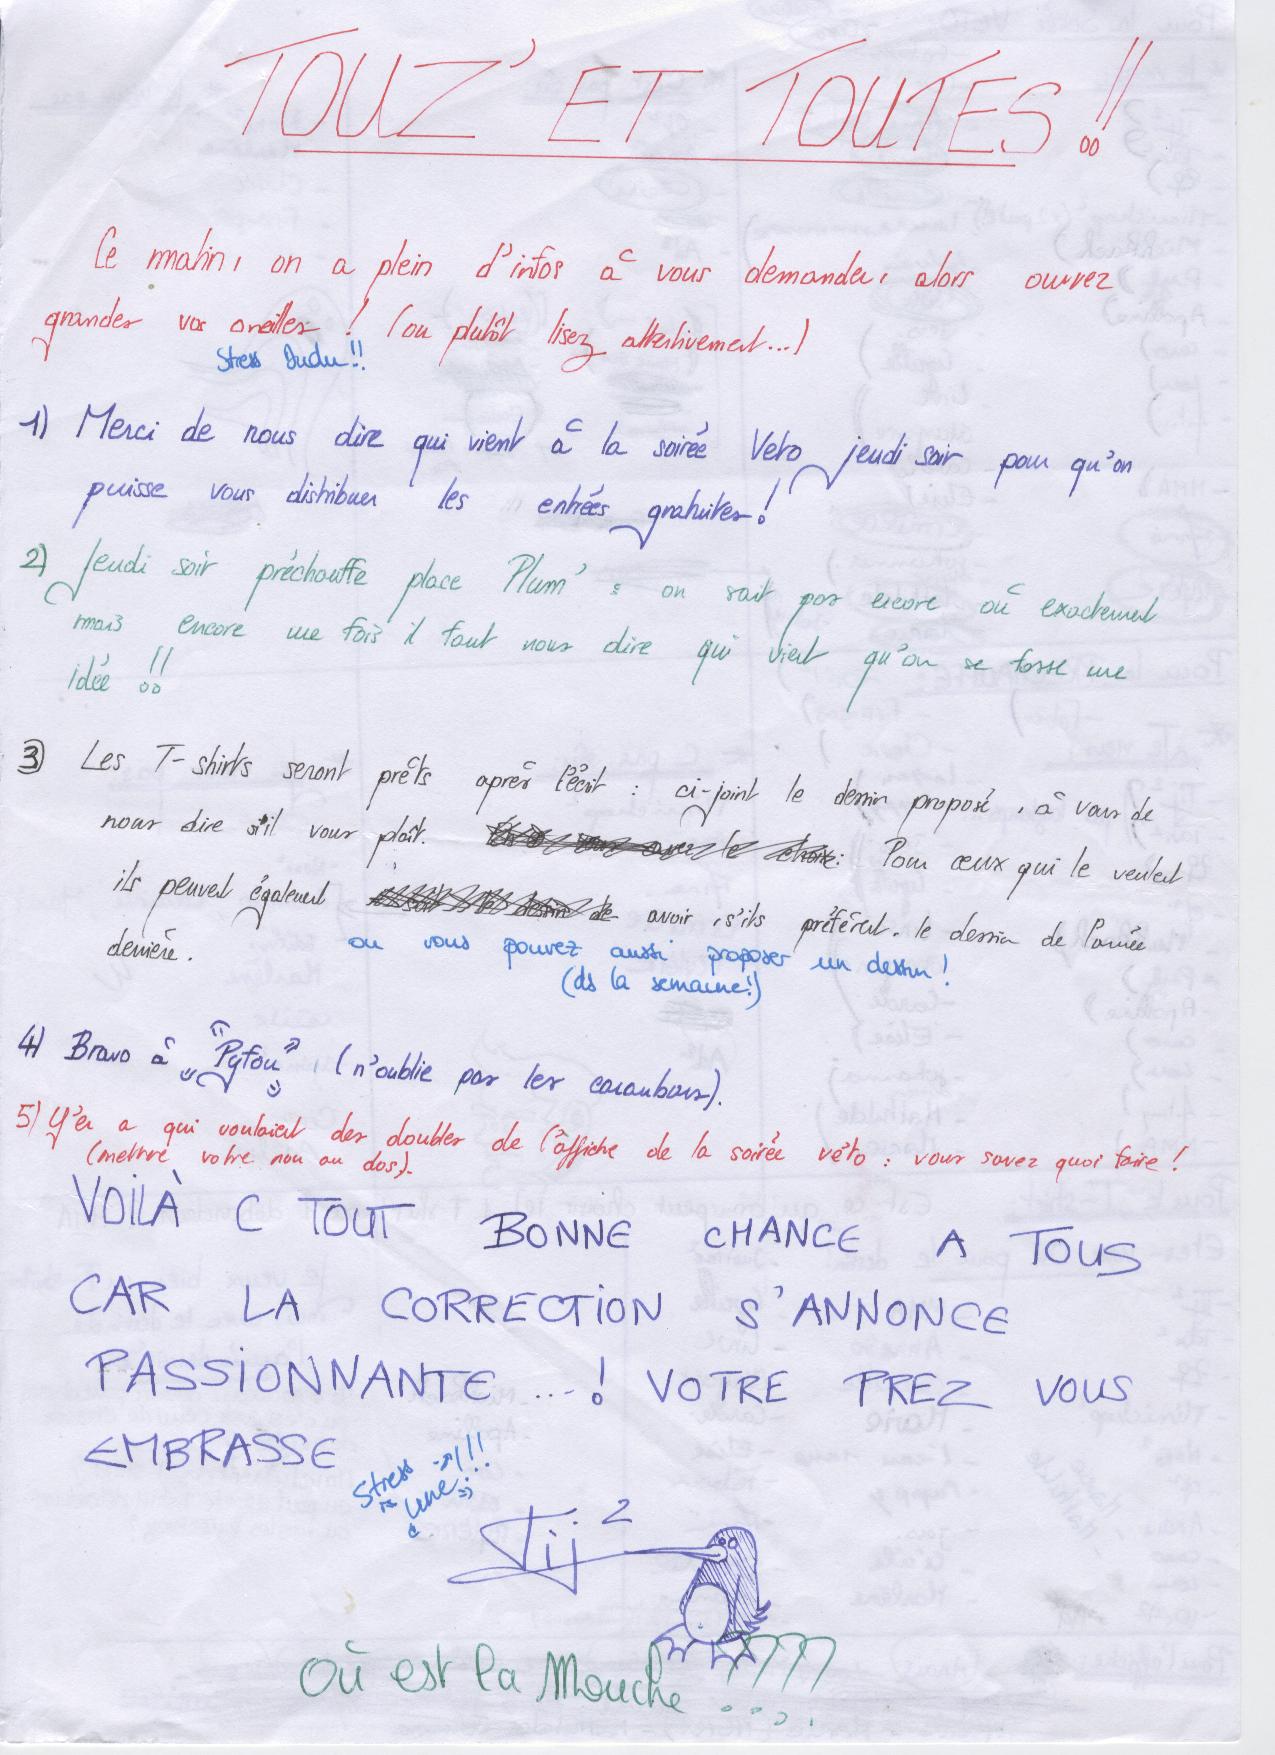 TOUZ' ET TOUTES !!
Ce matin, on a plein d'infos à vous demander, alors ouvrez
grandes vos oreilles ! (ou plutôt lisez attentivement...)
Stress Dudu !!
1) Merci de nous dire qui vient à la soirée Veto jeudi soir pour qu'on
puisse vous distribuer les entrées gratuites !
2) Jeudi soir préchauffe place Plum' : on sait pas encore où exactement
mais encore une fois il faut nous dire qui vient qu'on se fasse une
idée !!
3) Les T-shirts seront prêts après l'écrit : ci-joint le dessin proposé, à vous de
nous dire s'il vous plaît. Pour ceux qui le veulent
ils peuvent également avoir, s'ils préfèrent, le dessin de l'année
dernière. ou vous pouvez aussi proposer un dessin !
(ds la semaine !)
4) Bravo à "Pyfou", (n'oublie pas les carambars).
5) Y'en a qui voulaient des doubles de l'affiche de la soirée véto : vous savez quoi faire !
(mettre votre nom au dos).
VOILÀ C TOUT BONNE CHANCE A TOUS
CAR LA CORRECTION S'ANNONCE
PASSIONNANTE ...! VOTRE PREZ VOUS
EMBRASSE
Stress !!!
Tij²
Où est la Mouche ????